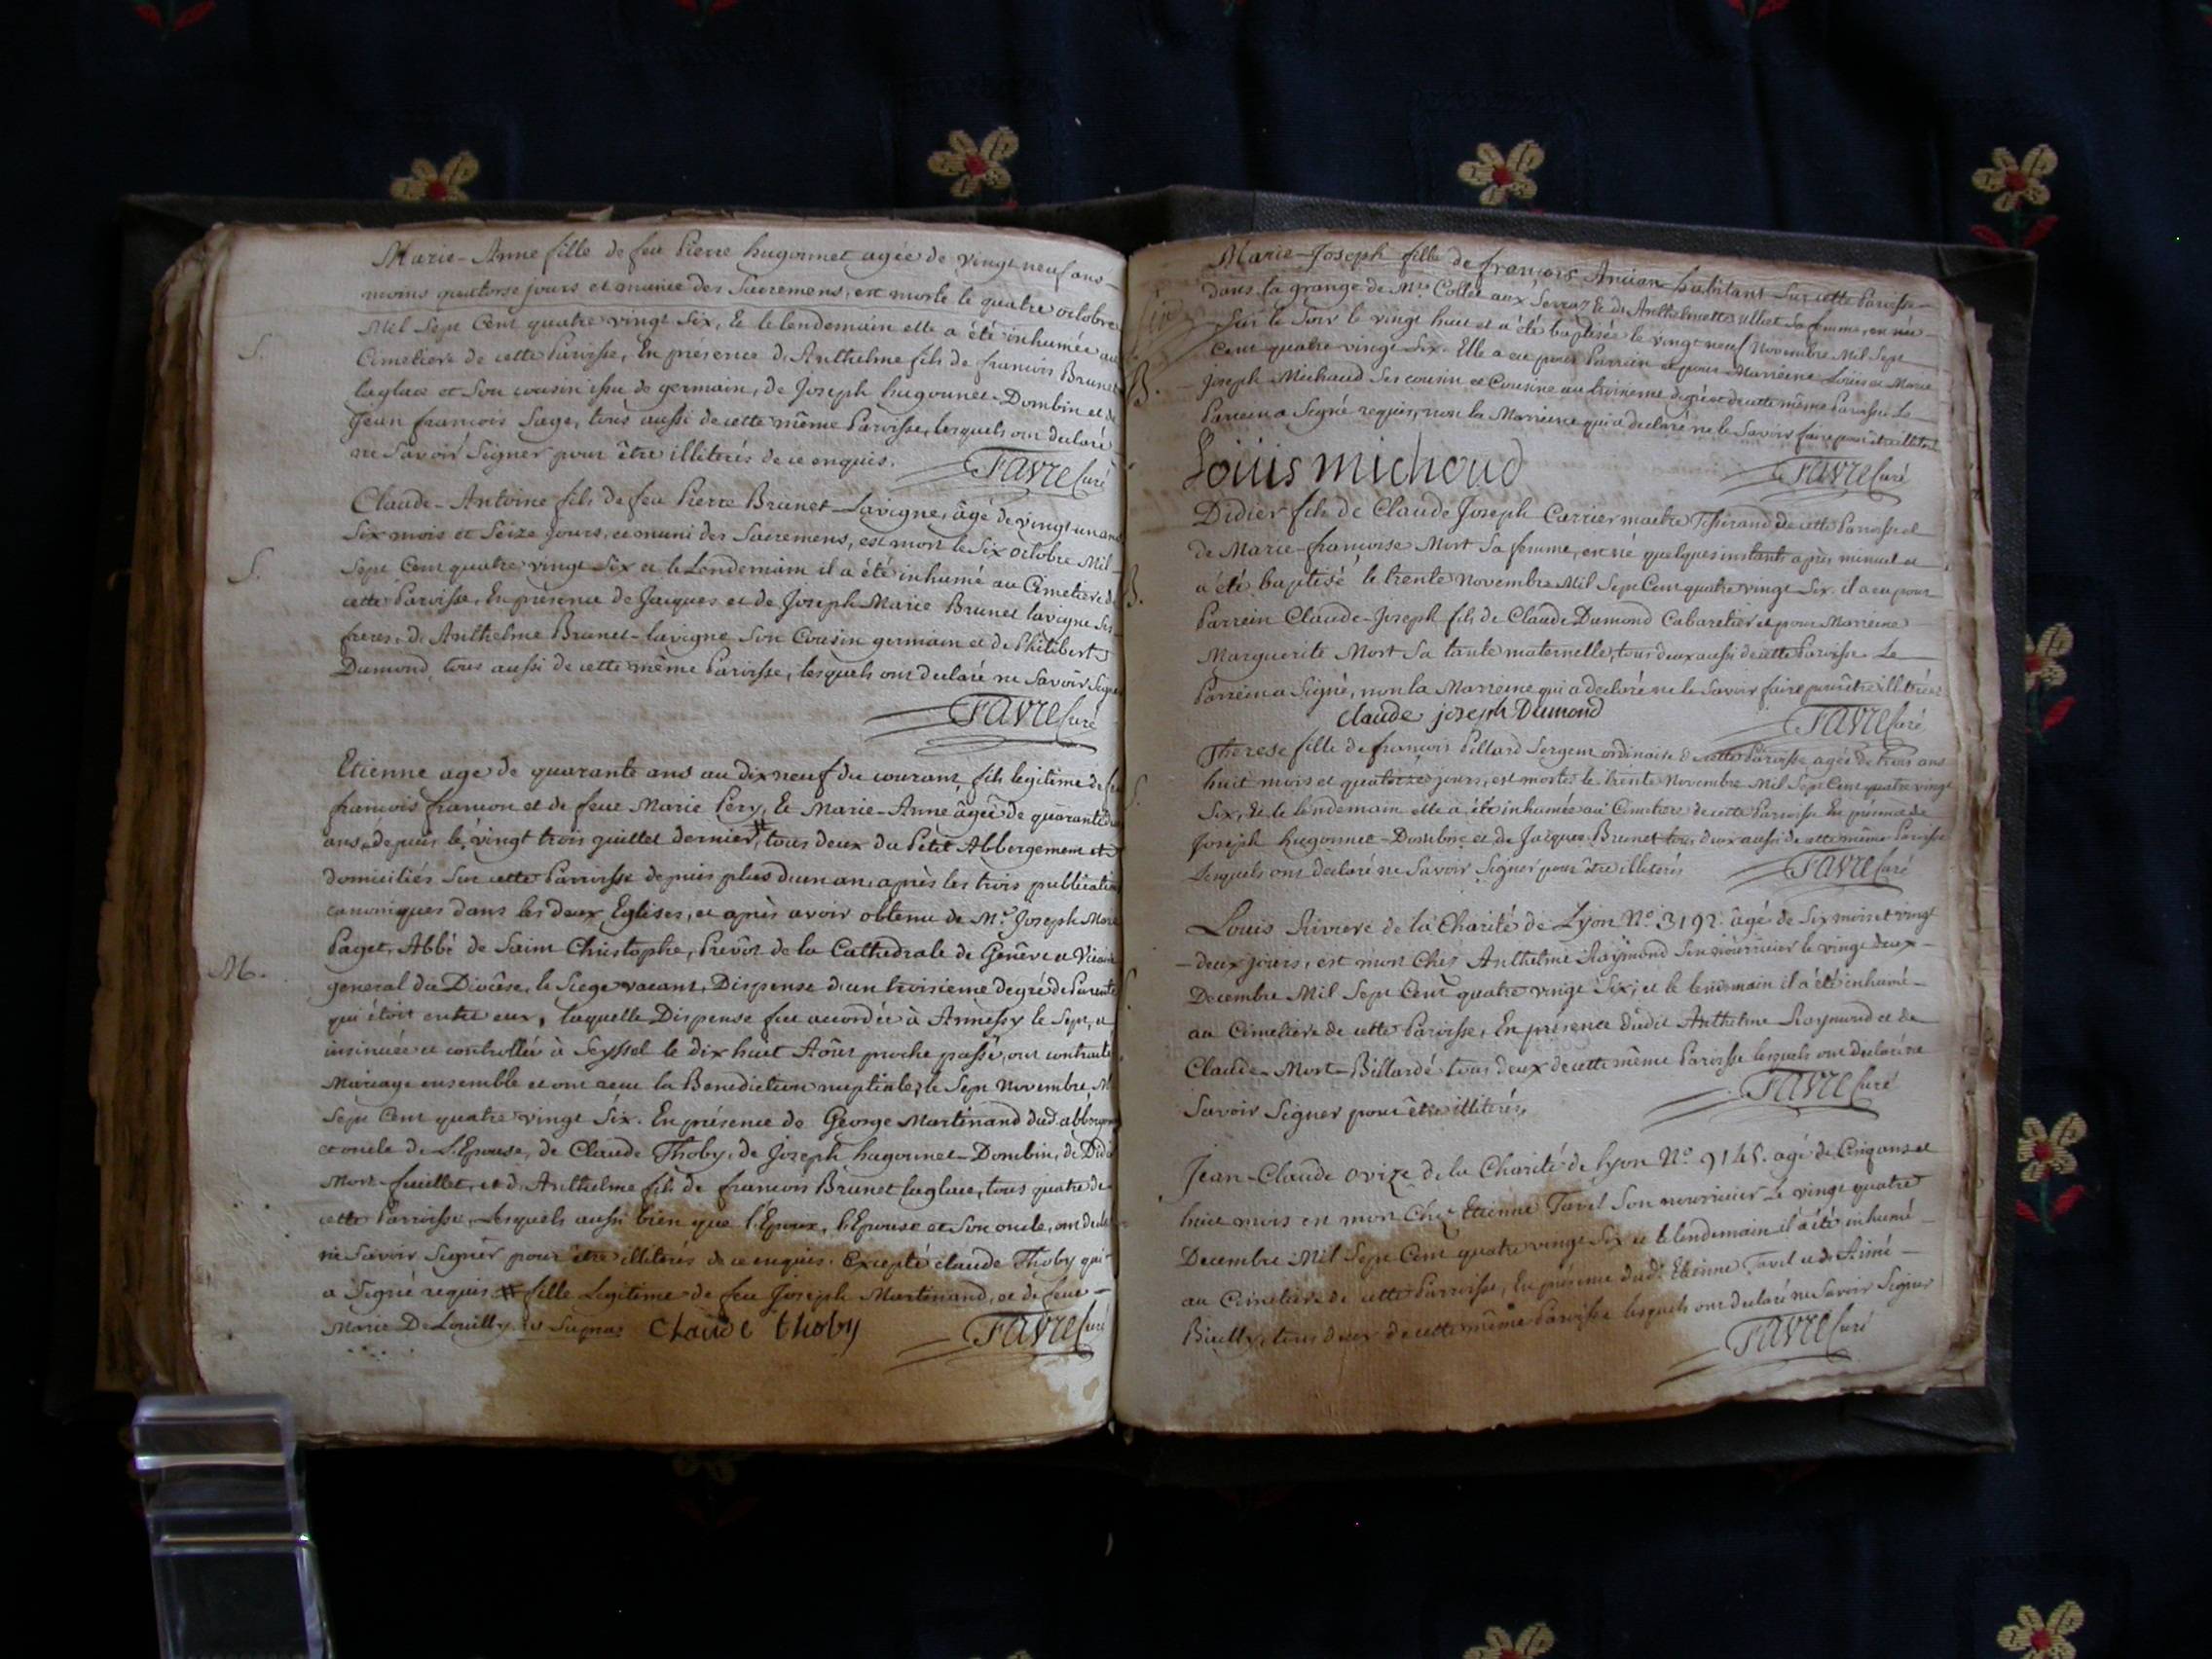 Marie-Anne fille de feu Pierre hugonnet agée de vingt neuf ans
moins quatorse jours et munie des Sacremens, est morte le quatre octobre
Mil Sept Cent quatre vingt Six, Et le lendemain elle a été inhumée au
S.
Cimetiere de cette Paroisse, En présence d'Anthelme fils de francois Brunet
laglace et Son cousin issu de germain, de Joseph hugonnet-Dombin et de
Jean francois Sage, tous aussi de cette même Paroisse, lesquels ont declaré
ne Savoir Signer pour être illiterés de ce enquis.
Favre Curé
Claude-Antoine fils de feu Pierre Brunet-Lavigne, âgé de vingt un ans
Six mois et Seize Jours, et muni des Sacremens, est mort le Six octobre Mil
S.
Sept Cent quatre vingt Six et le Lendemain il a été inhumé au Cimetiere de
cette Paroisse, En présence de Jacques et de Joseph Marie Brunet lavigne Ses
freres, d'Anthelme Brunet-lavigne Son Cousin germain et de Philibert
Dumond, tous aussi de cette même Paroisse, lesquels ont declaré ne Savoir Signer
Favre Curé
Etienne agé de quarante ans au dix neuf du courant, fils legitime de feu
francois francon et de feue Marie Pery, Et Marie-Anne âgée de quarante
ans, depuis le vingt trois juillet dernier #, tous deux du Petit Abbergement et
domiciliés Sur cette Parroisse depuis plus d'un an, après les trois publications
canoniques dans les deux Eglises, et après avoir obtenu de Mr. Joseph Marie
Paget, Abbé de Saint Christophe, Prevôt de la Cathedrale de Genêve et Vicaire
M.
general du Diocêse, le Siege vacant, Dispense d'un troisieme degré de Parenté
qui étoit entre eux, laquelle Dispense fut accordée à Annessy le Sept, et
insinuée et controllée à Seyssel le dix huit Aôut proche passé, ont contracté
Mariage ensemble et ont recu la Benediction nuptiale, le Sept Novembre Mil
Sept Cent quatre vingt Six. En présence de George Martinand dud. abbergement
et oncle de L'Epouse, de Claude Thoby, de Joseph hugonnet-Dombin, de Didier
Mort-feuillet, et d'Anthelme fils de francois Brunet laglace, tous quatre de
cette Parroisse, Lesquels aussi bien que l'Epoux, l'Epouse et Son oncle, ont declaré
ne Savoir Signer pour être illiterés de ce enquis. Excepté claude Thoby qui
a Signé requis # fille Legitime de feu Joseph Martinand, et de feue
Marie De Louilly ut Supra. Claude thoby Favre Curé
Marie-Joseph fille de francois Ancian habitant Sur cette Paroisse
dans la grange de Mr. Collet aux Serraz Et de Anthelmette Sa femme, est née
Sur le Soir le vingt huit et a été baptisée le vingt neuf Novembre Mil Sept
Cent quatre vingt Six. Elle a eu pour Parrein et pour Marreine Loüis et Marie
B.
Joseph Michaud Ses cousin et Cousine au troisieme degré et de cette même Paroisse Le
Parrein a Signé requis, non la Marreine qui a declaré ne le Savoir faire pour être illiterée
Loüis michoud
Favre Curé
Didier fils de Claude Joseph Carrier maitre Tisserand de cette Parroisse et
de Marie-francoise Mort Sa femme, est né quelques instants après minuit et
B.
a été baptisé le trente Novembre Mil Sept Cent quatre vingt Six. il a eu pour
Parrein Claude-Joseph fils de Claude Dumond Cabaretier et pour Marreine
Marguerite Mort Sa tante maternelle, tous deux aussi de cette Paroisse. Le
Parrein a Signé, non la Marreine qui a declaré ne le Savoir faire pour être illiterée
claude joseph Dumond
Favre Curé
Therese fille de francois Pillard Sergent ordinaire de cette Paroisse agée de trois ans
huit mois et quatorze jours, est morte le trente Novembre Mil Sept Cent quatre vingt
S.
Six, Et le lendemain elle a été inhumée au Cimetiere de cette Paroisse En présence de
Joseph hugonnet-Dombin et de Jacques Brunet tous deux aussi de cette même Paroisse
Lesquels ont declaré ne Savoir Signer pour être illiterés
Favre Curé
Louis Riviere de la Charité de Lyon No. 3192. âgé de Six mois et vingt
deux jours, est mort Chez Anthelme Raymond Son nourricier le vingt deux
Decembre Mil Sept Cent quatre vingt Six, et le lendemain il a été inhumé
au Cimetiere de cette Paroisse, En présence dudit Anthelme Raymond et de
Claude Mort-Billardé tous deux de cette même Paroisse lesquels ont declaré ne
Savoir Signer pour être illiterés,
Favre Curé
Jean-Claude ovize de la Charité de Lyon No. 9145. agé de Cinq ans et
huit mois est mort Chez Etienne Tavel Son nourricier Le vingt quatre
Decembre Mil Sept Cent quatre vingt Six et le lendemain il a été inhumé
au Cimetiere de cette Parroisse, En présence dud. Etienne Tavel et de Aimé
tous deux de cette même Paroisse lesquels ont declaré ne Savoir Signer
Favre Curé